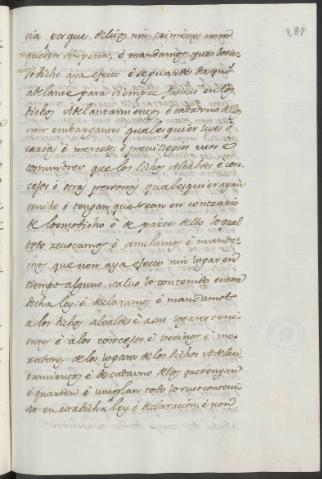 287
cia porque delitos nin crimenes non
queden sin pena, é mandamos que todo
lo dicho aya efecto é se guarde de aqui
adelante para siempre jamas en los
dichos Adelantamientos é cada uno dellos
non embargantes qualesquier leyes é
cartas é mercedes é previllegios usos é
costumbres que los dichos Alcaldes é con-
cejos é otras personas qualesquier ayan
tenido é tengan que sean en contrario
de lo susodicho é de parte dello lo qual
todo revocamos é anulamos é manda-
mos que non aya efecto nin logar en
tiempo alguno salvo lo contenido en esta
dicha ley é declaramos é mandamos
a los dichos alcaldes é a sus logares teni-
entes é a los concejos é vecinos é mo-
radores de los logares de los dichos Adelan-
tamientos é de cada uno dellos que tengan
é guarden é cumplan todo lo suso conteni-
do en esta dicha ley é declaracion, é non